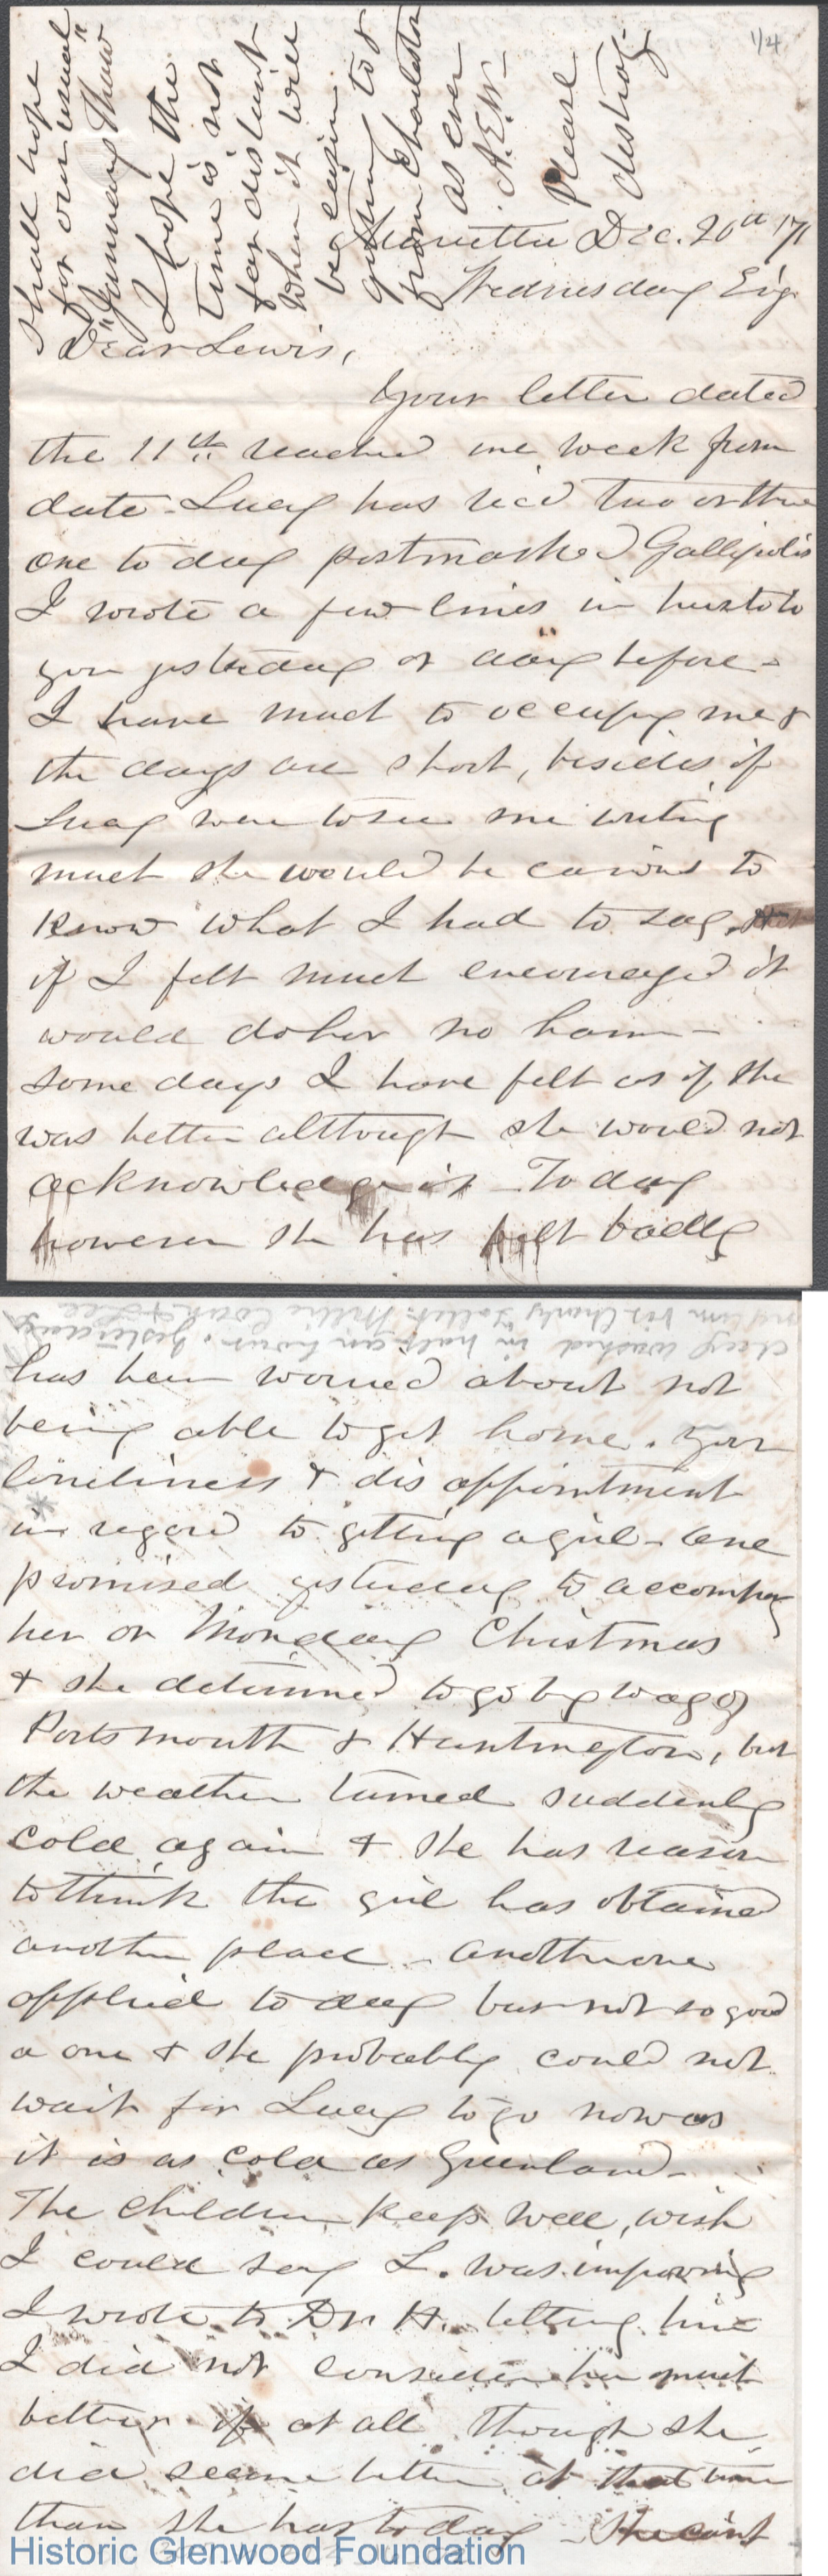 1/4
shall hope
for our usual
"January Thaw"
I hope the
time is not
far distant
when it will
be easier
getting to &
from Charleston
as ever
A.E.W.
Please
destroy
Marietta Dec. 20th 71
Wednesday Evg.
Dear Lewis,
Your letter dated
the 11th reached me week from
date. Lucy has recd two or three
one to day postmarked Gallipolis
I wrote a few lines in haste to
you yesterday or day before-
I have much to occupy me &
the days are short, besides if
Lucy were to see me writing
much she would be curious to
know what I had to say.
if I felt much encouraged it
would do her no harm -
some days I have felt as if she
was better although she would not
acknowledge it - To day
however she has felt badly
day washed in half an hour. yesterday
has been worried about not
being able to get home. Your
loneliness & dis appointment
in regard to getting a girl - One
promised yesterday to accompany
her on Monday Christmas
& she determined to go by way of
Portsmouth & Huntington, but
the weather turned suddenly
cold again & she has reason
to think the girl has obtained
another place - another one
applied to day but not so good
a one & she probably could not
wait for Lucy to go now as
it is as cold as Greenland -
The children keep well, wish
I could say L. was improving
I wrote to Dr. H. letting him
I did not consider her much
better if at all though she
did seem better at that time
than she has to day - She cant
Historic Glenwood Foundation